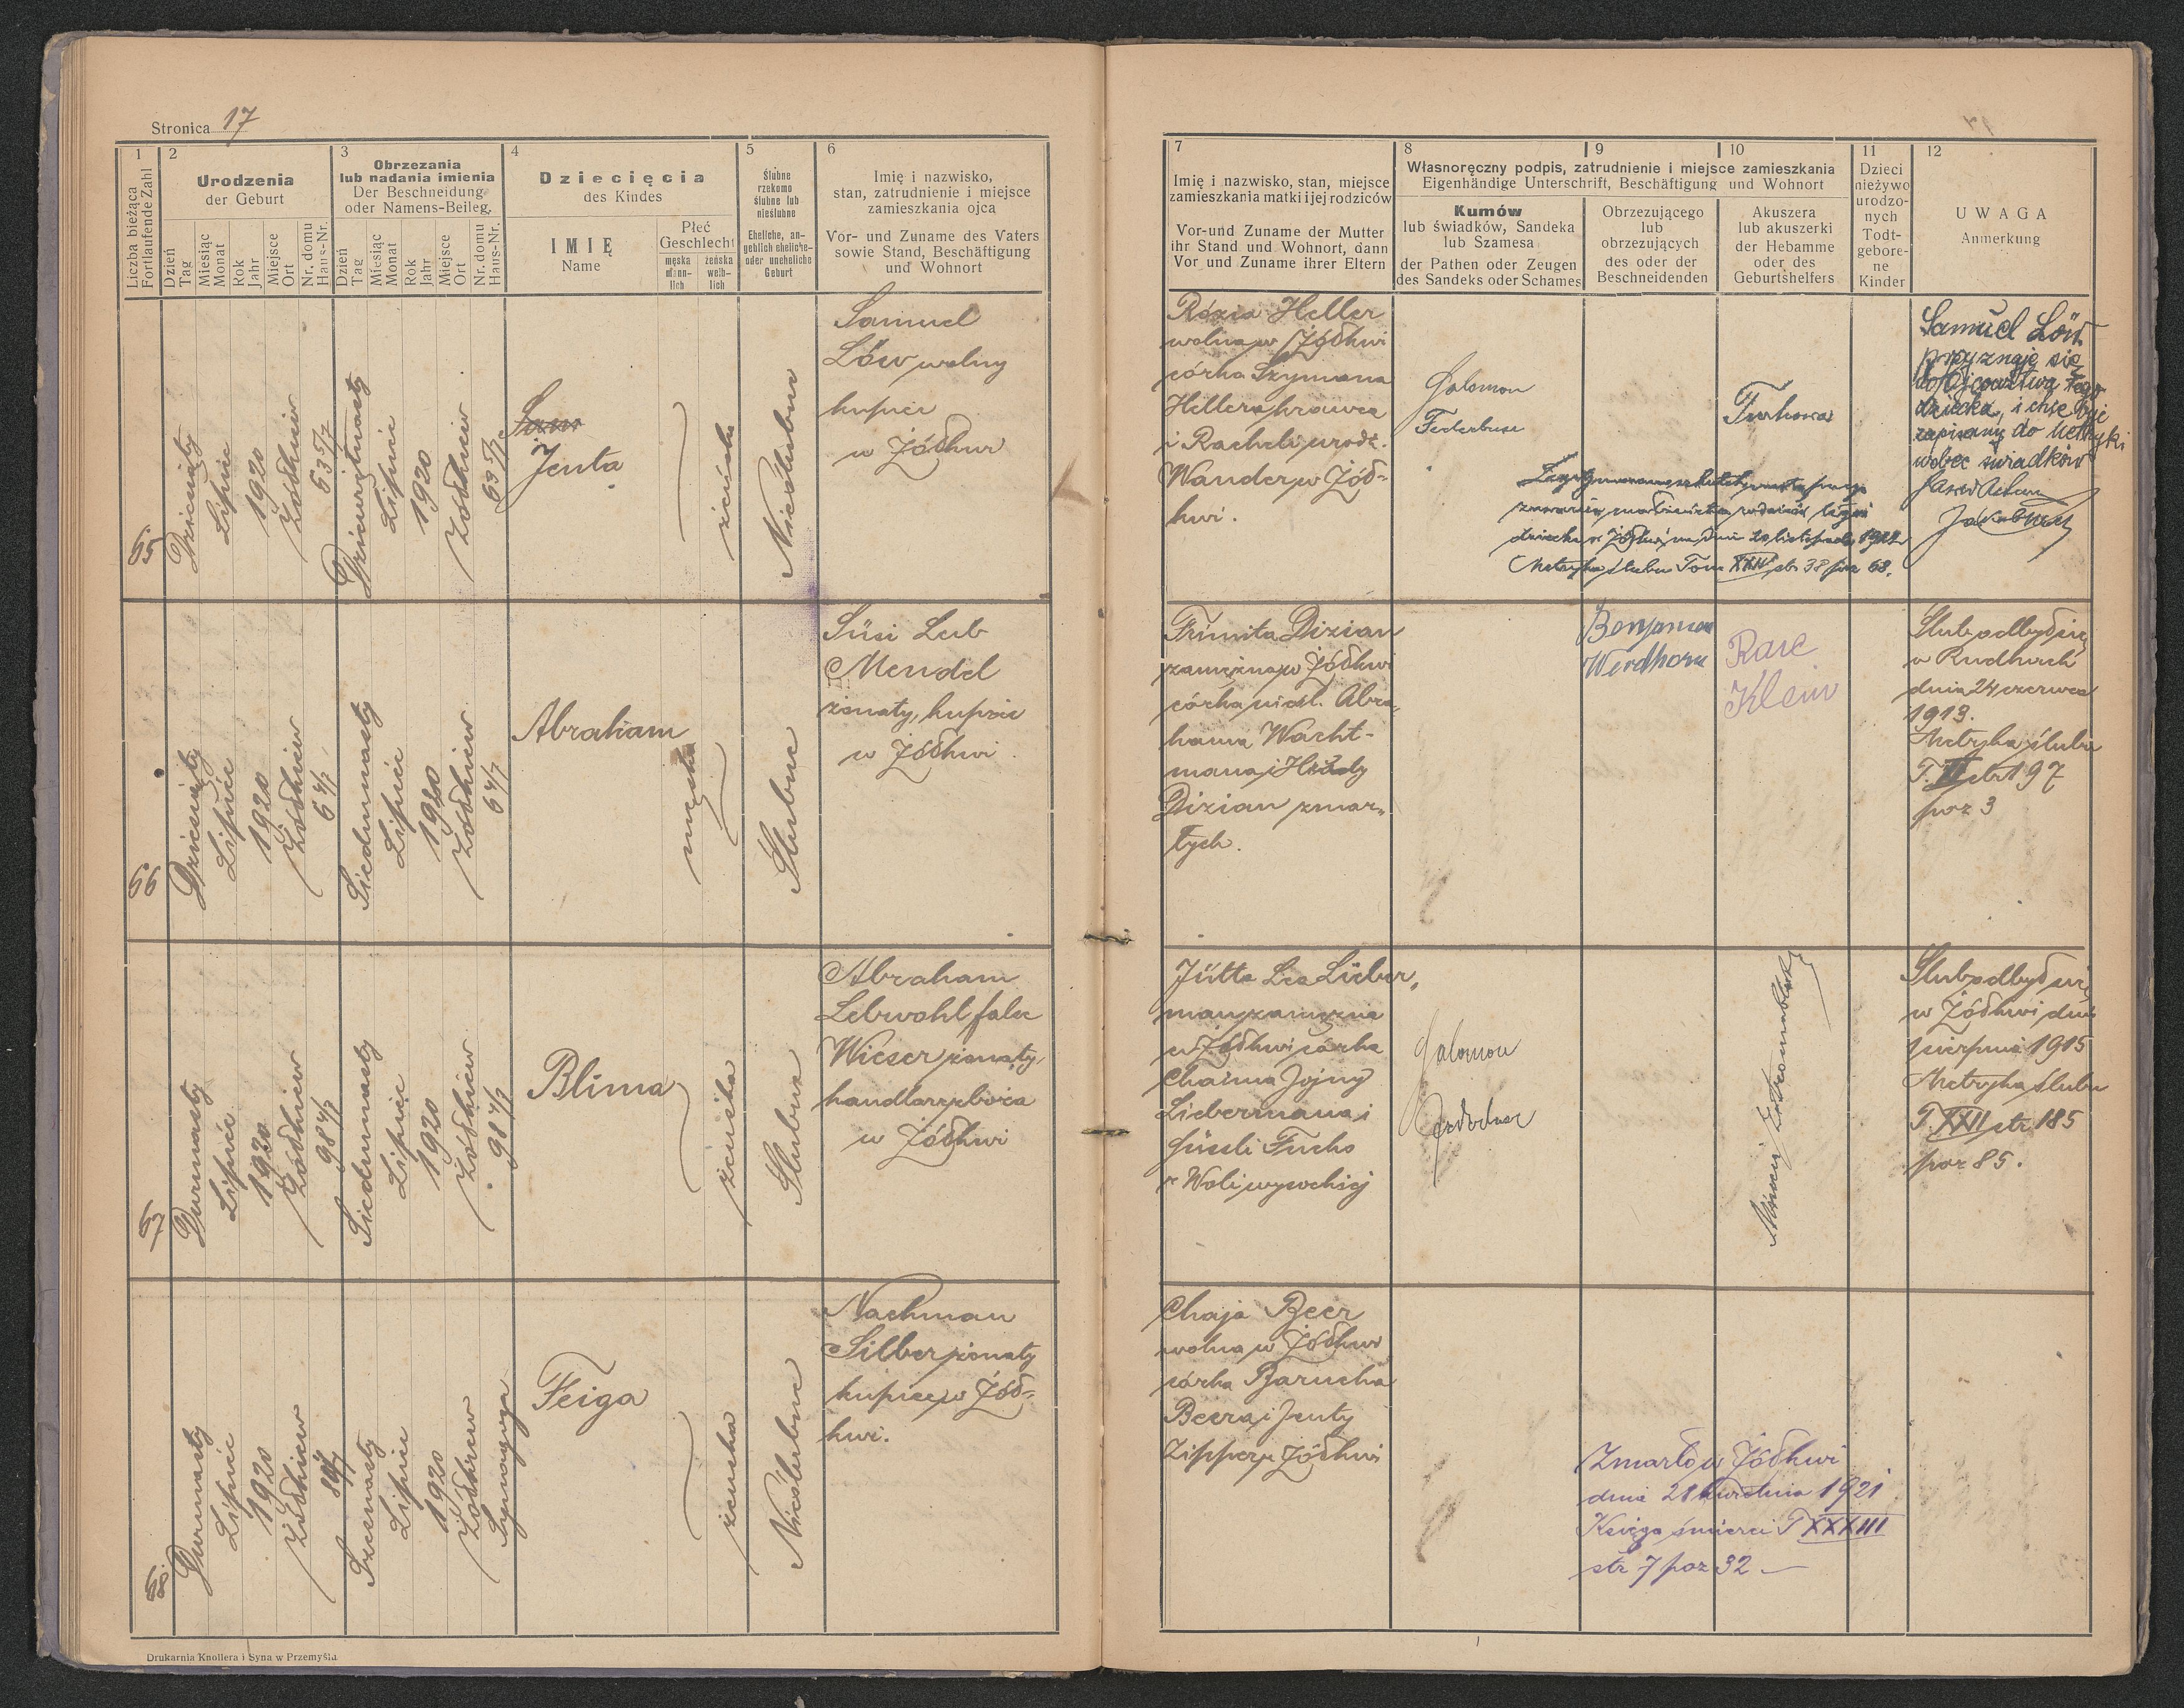 Stronica 17
1
2
3
4
5
6
Liczba bieżąca
Fortlaufende Zahl
Urodzenia
der Geburt
Dzień
Tag
Miesiąc
Monat
Rok
Jahr
Miejsce
Ort
Nr. domu
Haus-Nr.
Obrzezania
lub nadania imienia
Der Beschneidung
oder Namens-Beileg.
Dzień
Tag
Miesiąc
Monat
Rok
Jahr
Miejsce
Ort
Nr. domu
Haus-Nr.
Dziecięcia
des Kindes
IMIĘ
Name
Płeć
Geschlecht
męska
männ-
lich
żeńska
weib-
lich
Ślubne
rzekomo
ślubne lub
nieślubne
Eheliche, an-
geblich eheliche-
oder uneheliche
Geburt
Imię i nazwisko,
stan, zatrudnienie i miejsce
zamieszkania ojca
Vor- und Zuname des Vaters
sowie Stand, Beschäftigung
und Wohnort
65
Dziesiąty
Lipiec
1920
Żółkiew
Dziewiętnasty
Lipiec
1920
Żółkiew
Jenta
żeńska
Nieślubne
Samuel
Löw wolny
kupiec
w Żółkwi
66
Dziesiąty
Lipiec
1920
Żółkiew
Siedmnasty
Lipiec
1920
Żółkiew
Abraham
męska
Ślubne
Süsi Leib
Mendel
żonaty, kupiec
w Żółkwi
67
Dwunasty
Lipiec
1920
Żółkiew
Siedmnasty
Lipiec
1920
Żółkiew
Blima
żeńska
Ślubne
Abraham
Lebwohl false
Wieser żonaty,
handlarz zboża
w Żółkwi
68.
Dwunasty
Lipiec
1920
Żółkiew
Lipiec
1920
Żółkiew
Synagoga
Feiga
żeńska
Nieślubne
Nachman
Silber żonaty
kupiec w Żół=
kwi.
Drukarnia Knollera i Syna w Przemyślu
7
8
9
10
11
12
Imię i nazwisko, stan, miejsce
zamieszkania matki i jej rodziców
Vor-und Zuname der Mutter
ihr Stand und Wohnort, dann
Vor und Zuname ihrer Eltern
Własnoręczny podpis, zatrudnienie i miejsce zamieszkania
Eigenhändige Unterschrift, Beschäftigung und Wohnort
Kumów
lub świadków, Sandeka
lub Szamesa
der Pathen oder Zeugen
des Sandeks oder Schames
Obrzezującego
lub
obrzezujących
des oder der
Beschneidenden
Akuszera
lub akuszerki
der Hebamme
oder des
Geburtshelfers
Dzieci
nieżywo
urodzo-
nych
Todt-
gebore-
ne
Kinder
UWAGA
Anmerkung
Rózia Heller
wolna w Żółkwi
córka Szymona
Hellera krawca
i Racheli urodz.
Wander w Żół=
kwi.
Salomon
Samuel Löw
przyznaję się
do ojcowstwa tego
dziecka, i chcę być
zapisany do Metryki
wobec świadków
zawarcia małżeństwa rodziców tegoż
dziecka w Żółkwi na dniu 20 listopada 192
Metryka ślubu Tom XXIV str 38 poz 68.
Dizian
zamężna w Żółkwi
córka nieśl. Abra-
hama Wacht-
mana i
Dizian zmar-
łych.
Benjamin
Werdhorn
Klein
Ślub odbył się
w Rudkach
dnia 24 czerwca
1913.
Metryka ślubu
str 197
poz 3
Jütta Lea Lieber,
man zamężna
w Żółkwi córka
Chaima Jojny
Liebermana i
Süssli Fuchs
z Woli wysockiej
Salomon
Ślub odbył się
w Żółkwi dnia
sierpnia 1915
Metryka ślubu
T. XXII str. 185
poz 85.
Chaja Beer
wolna w Żółkwi
córka Barucha
Beera i Jenty
Zipper z Żółkwi
Zmarło w Żółkwi
dnia 28 kwietnia 1921
Księga śmierci T XXXIII
str 7 poz 32 —